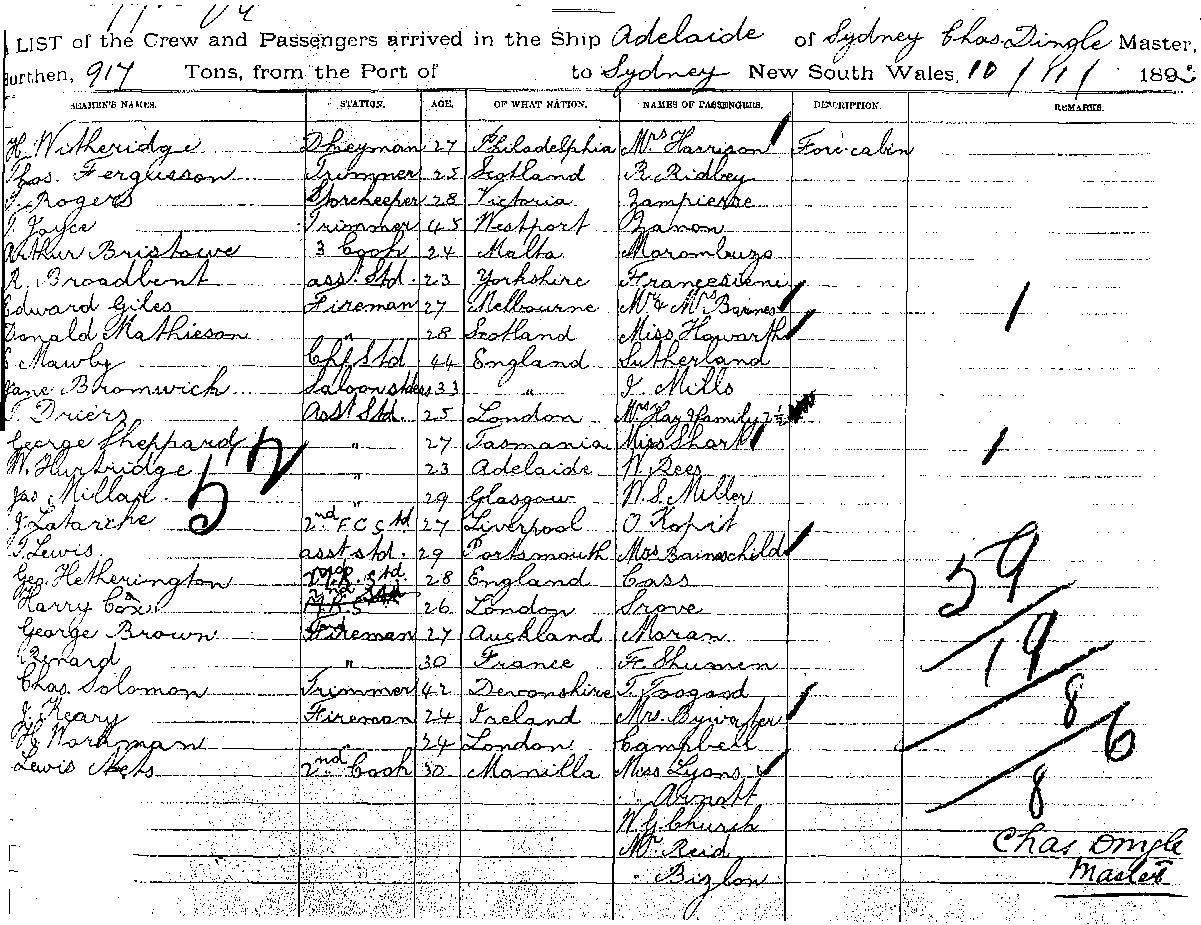 LIST of the Crew and Passengers arrived in the Ship Adelaide of Sydney Chas. Dingle Master,
Burthen, 917 Tons, from the Port of to Sydney New South Wales, 10 / 11 / 189
SEAMEN'S NAMES. STATION. AGE. OF WHAT NATION. NAMES OF PASSENGERS. DESCRIPTION. REMARKS.
H. Witheridge 27 Philadelphia Mrs Harrison Fore-cabin
Thos. Fergusson Trimmer 25 Scotland R. Ridbey
Rogers Storekeeper 28 Victoria Zampierse
Joyce Trimmer 45 Westport Zanon
Arthur Bristowe 3 Cook 24 Malta Marombuzo
R. Broadbent asst. Std. 23 Yorkshire Francescieni
Edward Giles Fireman 27 Melbourne Mr & Mrs Barnes 1
Donald Mathieson " 28 Scotland Miss Howarth
Mawby Chf Std 44 England Sutherland
Jane Bromwich Saloon 33 " J. Mills
Driers Asst Std. 25 London Mrs Hay & family 2½
George Sheppard " 27 Tasmania Miss Shark 1
W. Hurtridge " 23 Adelaide W. Rees
Jas. Millar " 29 Glasgow W. S. Miller
52
J. Latarche 2nd F C Std 27 Liverpool O. Kopit
T. Lewis asst std. 29 Portsmouth
Geo. Hetherington Std. 28 England Cass
59
Harry Cox 26 London Srove
George Brown Fireman 27 Auckland Moran
19
Renard " 30 France F. Shumen
Chas. Solomon Trimmer 42 Devonshire T. Toogand
J. Keary Fireman 24 Ireland Mrs. Bywater
8
H. Workman 24 London Campbell
6
Lewis 2nd Cook 30 Manilla Miss Lyons
Arnott
8
W. G. Church
Mr. Reid
Chas Dingle
Bizlon
Master